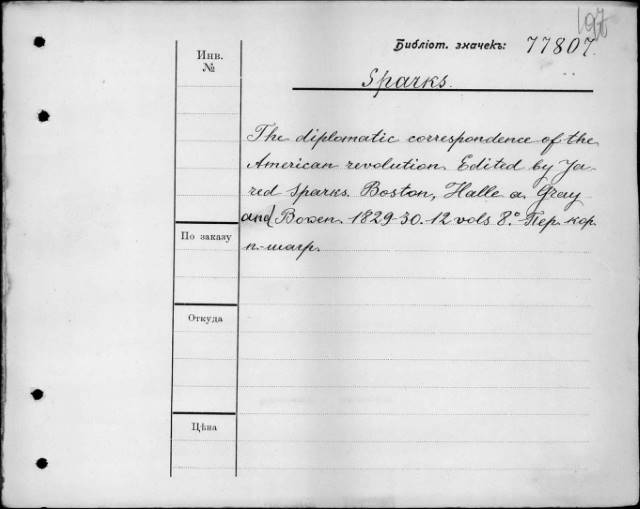 197
Библіот. значекъ: 77807.
Инв. №
Sparks.
The diplomatic correspondence of the
American revolution. Edited by Ja-
red Sparks. Boston, Halle a. Gray
and Bowen. 1829-30. 12 vols 8.° Пер. кор.
п. шагр.
По заказу
Откуда
Цѣна